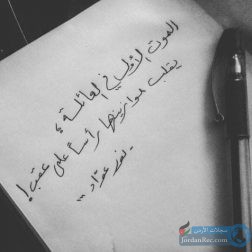 الموت الأول في العائلة ،
يقلب موازينها رأساً على عقب !
سجلات الأردن
JordanRec.com